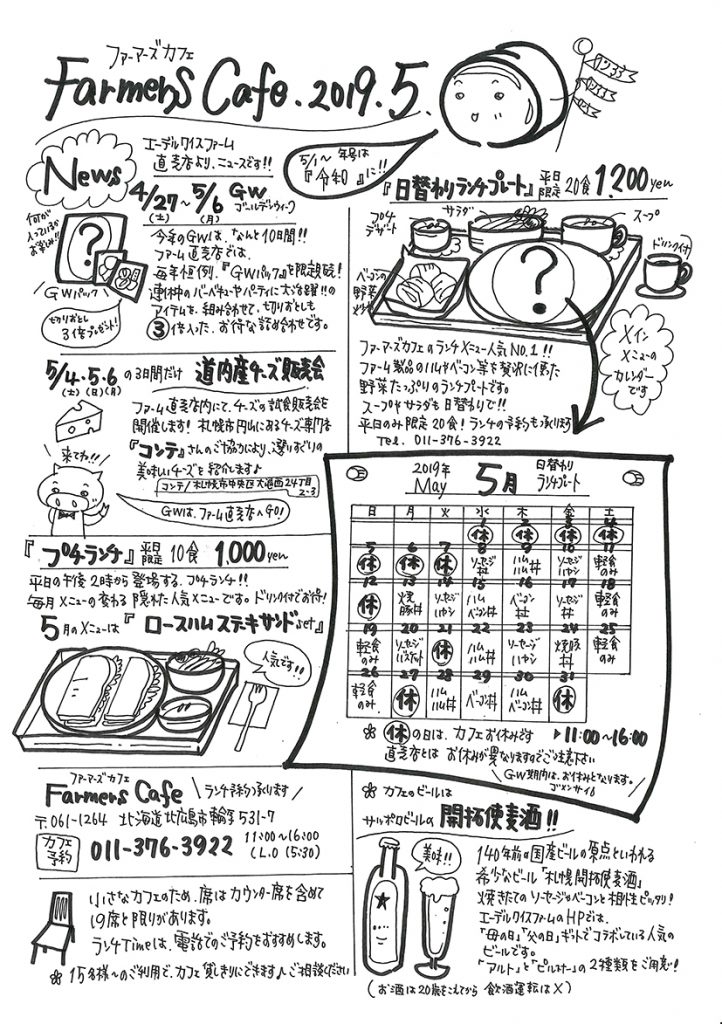 ファーマーズカフェ
Farmers Cafe. 2019. 5.
5/1〜 年号は
『令和』に!!
News
エーデルワイスファーム
直売店より、ニュースです!!
4/27〜5/6 GW
(土) (月) ゴールデンウィーク
何が
入っているか
お楽しみ!!
GWパック
切りおとし
3倍プレゼント!
今年のGWは、なんと10日間!!
ファーム直売店では、
毎年恒例、『GWパック』を限定販売!
連休中のバーベキューやパーティに大活躍!!の
アイテムを組み合わせて、切りおとしも
③倍入った、お得な詰め合わせです。
5/4・5・6 の3日間だけ 道内産チーズ販売会
(土)(日)(月)
ファーム直売店内にて、チーズの試食販売会を
開催します! 札幌市円山にあるチーズ専門店
『コンテ』さんのご協力により、選りすぐりの
美味しいチーズを紹介します♪
コンテ/札幌市中央区大通西24丁目
2-3
来てね!!
GWは、ファーム直売店へGO!
『プチランチ』平日限定 10食 1,000yen
平日の午後2時から登場する、プチランチ!!
毎月メニューの変わる隠れた人気メニューです。ドリンク付でお得!
5月のメニューは『ロースハムステーキサンドset』
人気です!!
『日替わりランチプレート』平日限定 20食 1,200yen
プチデザート
サラダ
スープ
ドリンク付
ベーコンの
野菜
メイン
メニューの
カレンダー
です
ファーマーズカフェのランチメニュー人気NO.1!!
ファーム製品のハムやベーコン等を贅沢に使った
野菜たっぷりのランチプレートです。
スープやサラダも日替わりで!!
平日のみ限定20食! ランチの予約も承ります
Tel. 011-376-3922
2019年 May 5月 日替わりランチプレート
日 月 火 水 木 金 土
1 2 3 4
休 休 休 休
5 6 7 8 9 10 11
休 休 休 ソーセージ丼 ハムハム丼 ソーセージハヤシ 軽食のみ
12 13 14 15 16 17 18
休 焼豚丼 ソーセージハヤシ ハムベーコン丼 ベーコン丼 ソーセージ丼 軽食のみ
19 20 21 22 23 24 25
軽食のみ ソーセージ 休 ハムハム丼 ソーセージハヤシ 焼豚丼 軽食のみ
26 27 28 29 30 31
軽食のみ 休 ハムハム丼 ベーコン丼 ハムハム丼 休
※ 休の日は、カフェお休みです ▶11:00〜16:00
直売店とは お休みが異なりますのでご注意下さい
GW期間内は、お休みとなります。
ゴメンナサイ
ファーマーズカフェ
Farmers Cafe ランチ予約承ります
〒061-1264 北海道北広島市輪厚531-7
カフェ予約 011-376-3922 11:00〜16:00
(L.O 15:30)
小さなカフェのため、席はカウンター席を含めて
19席と限りがあります。
ランチTimeは、電話でのご予約をおすすめします。
※ 15名様〜のご利用で、カフェ貸しきりにできます♪ご相談ください
※ カフェのビールは
サッポロビールの 開拓使麦酒!!
美味!!
140年前の国産ビールの原点といわれる
希少なビール「札幌開拓使麦酒」
焼きたてのソーセージやベーコンと相性ピッタリ!
エーデルワイスファームのHPでは、
「母の日」「父の日」ギフトでコラボしている人気の
ビールです。
「アルト」と「ピルスナー」の2種類をご用意!
(お酒は20歳をこえてから 飲酒運転は×)